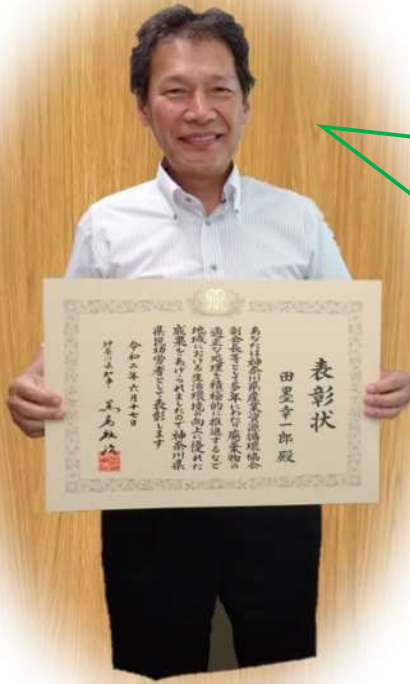 表彰状
田墨幸一郎 殿
あなたは神奈川県産業資源循環協会
副会長等として多年にわたり廃棄物の
適正な処理を積極的に推進するなど
地域における生活環境の向上に優れた
成果をあげられましたので神奈川県
県民功労者として表彰します
令和二年六月十七日
神奈川県知事 黒岩祐治